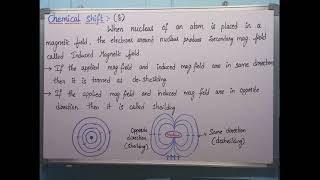 Chemical shift :- (δ)
When nucleus of an atom is placed in a
magnetic field, the electrons around nucleus produce Secondary mag. field
called Induced Magnetic field.
→ If the applied mag.field and induced mag.field are in same direction
then it is termed as de-sheilding.
→ If the applied mag.field and induced mag.field are in opposite
direction then it is called sheilding.
Opposite
direction
(sheilding)
Same direction
(desheilding)